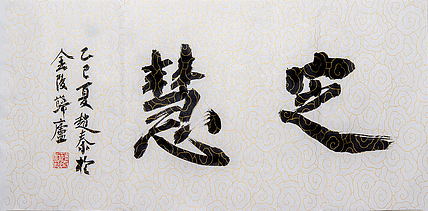 定慧
乙巳夏趙泰於
金陵學廬